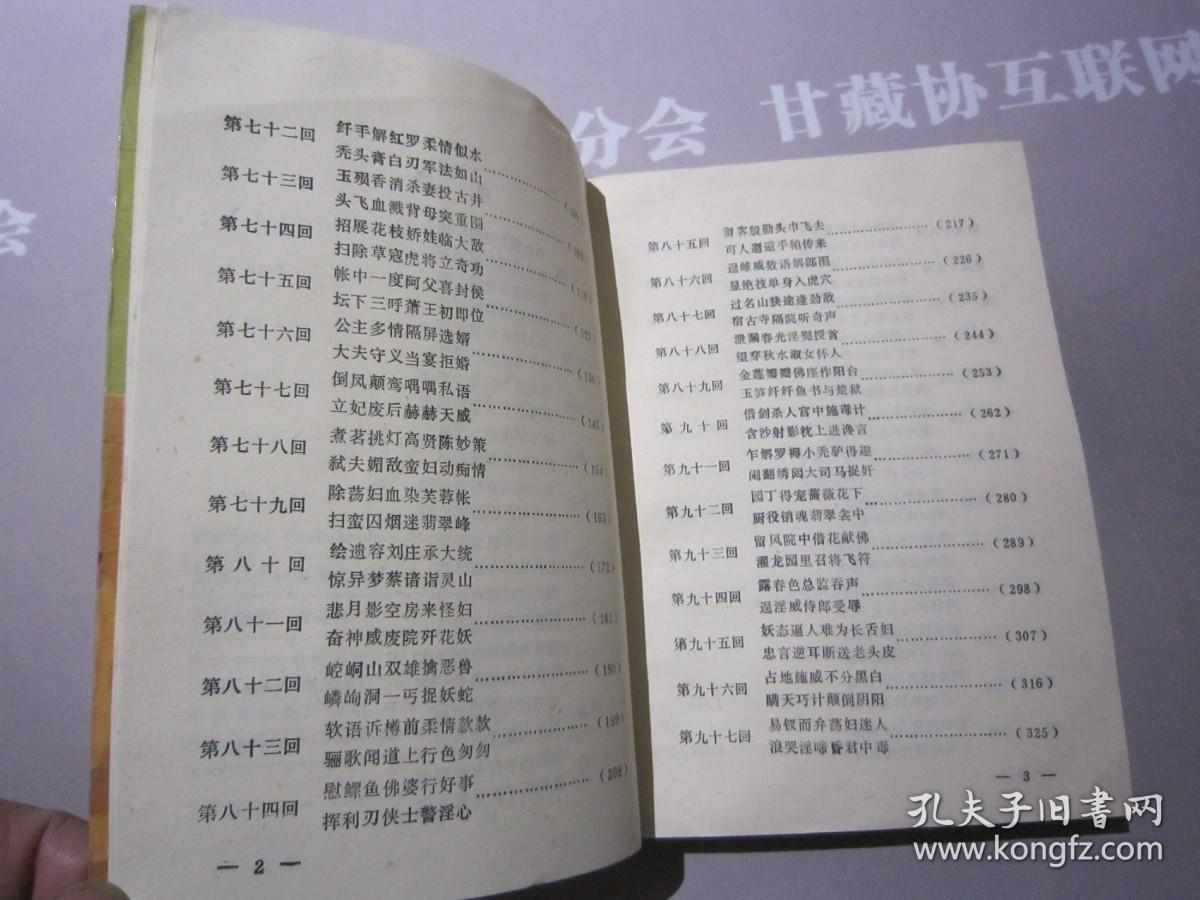 分会 甘藏协互联网
会
第七十二回 纤手解红罗柔情似水
秃头膏白刃军法如山
第七十三回 玉殒香消杀妻投古井
头飞血溅背母突重围
第七十四回 招展花枝娇娃临大敌
扫除草寇虎将立奇功
第七十五回 帐中一度阿父喜封侯
坛下三呼萧王初即位
第七十六回 公主多情隔屏选婿
大夫守义当宴拒婚
第七十七回 倒凤颠鸾喁喁私语 (145)
立妃废后赫赫天威
第七十八回 煮茗挑灯高贤陈妙策 (154)
弑夫媚敌蛮妇动痴情
第七十九回 除荡妇血染芙蓉帐 (163)
扫蛮囚烟迷翡翠峰
第八十回 绘遗容刘庄承大统 (172)
惊异梦蔡谙诣灵山
第八十一回 悲月影空房来怪妇 (181)
奋神威废院歼花妖
第八十二回 崆峒山双雄擒恶兽 (190)
嶙峋洞一丐捉妖蛇
第八十三回 软语诉樽前柔情款款 (199)
骊歌闻道上行色匆匆
第八十四回 慰鳏鱼佛婆行好事 (208)
挥利刃侠士警淫心
— 2 —
第八十五回 客殷勤头巾飞去 (217)
可人邂逅手帕传来
第八十六回 逞雌威数语解郎围 (226)
显绝技单身入虎穴
第八十七回 过名山狭途逢劲敌 (235)
宿古寺隔院听奇声
第八十八回 泄漏春光淫髡授首 (244)
望穿秋水淑女怀人
第八十九回 金莲瓣瓣佛座作阳台 (253)
玉笋纤纤鱼书与楚狱
第九十回 借剑杀人宫中施毒计 (262)
含沙射影枕上进谗言
第九十一回 乍解罗襦小秃驴得趣 (271)
闹翻绣闼大司马捉奸
第九十二回 园丁得宠蔷薇花下 (280)
厨役销魂翡翠衾中
第九十三回 留风院中借花献佛 (289)
濯龙园里召将飞符
第九十四回 露春色总监吞声 (298)
逞淫威侍郎受辱
第九十五回 妖态逼人难为长舌妇 (307)
忠言逆耳断送老头皮
第九十六回 占地施威不分黑白 (316)
瞒天巧计颠倒阴阳
第九十七回 易钗而弁荡妇迷人 (325)
浪哭淫啼昏君中毒
— 3 —
孔夫子旧书网
www.kongfz.com